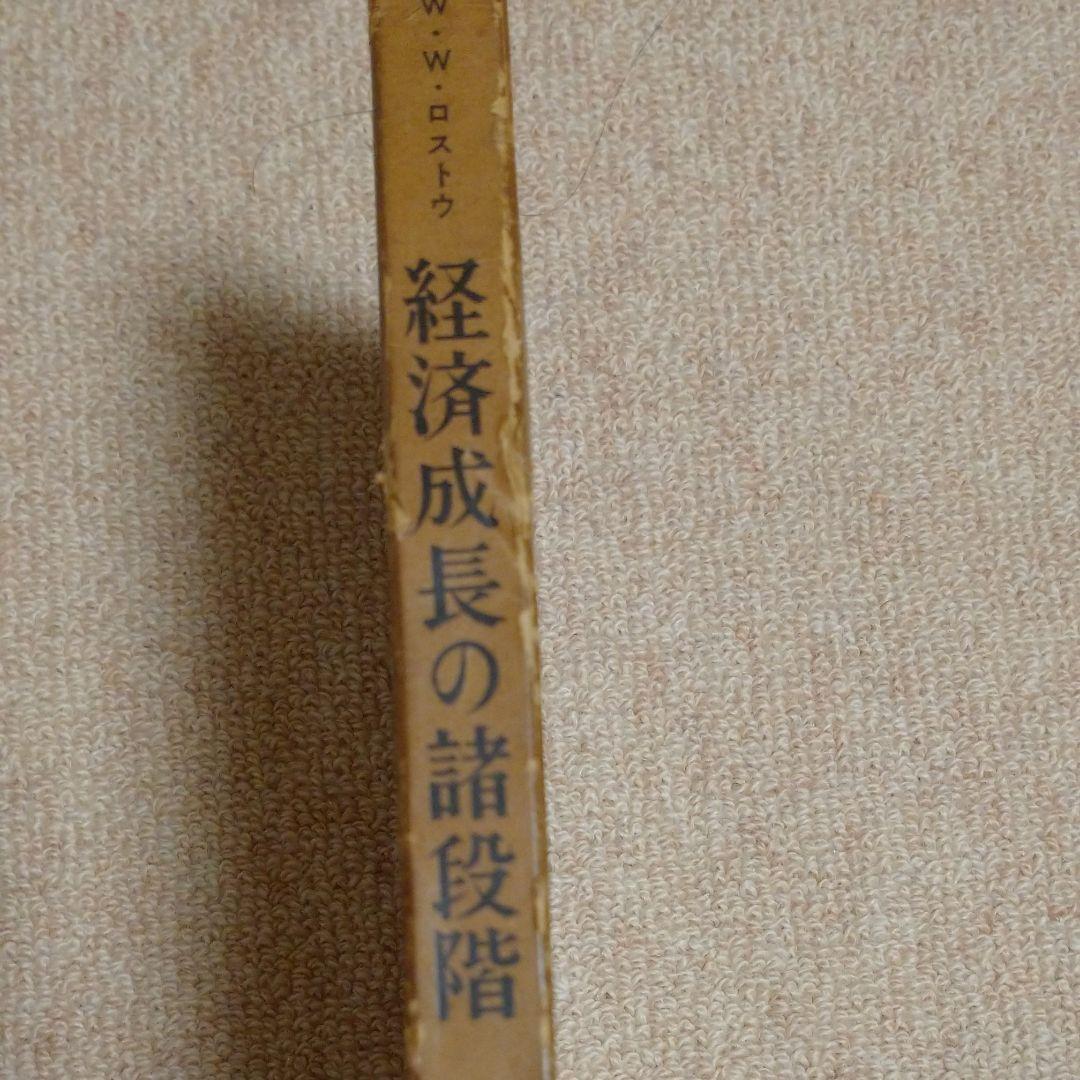 W・W・ロストウ
経済成長の諸段階